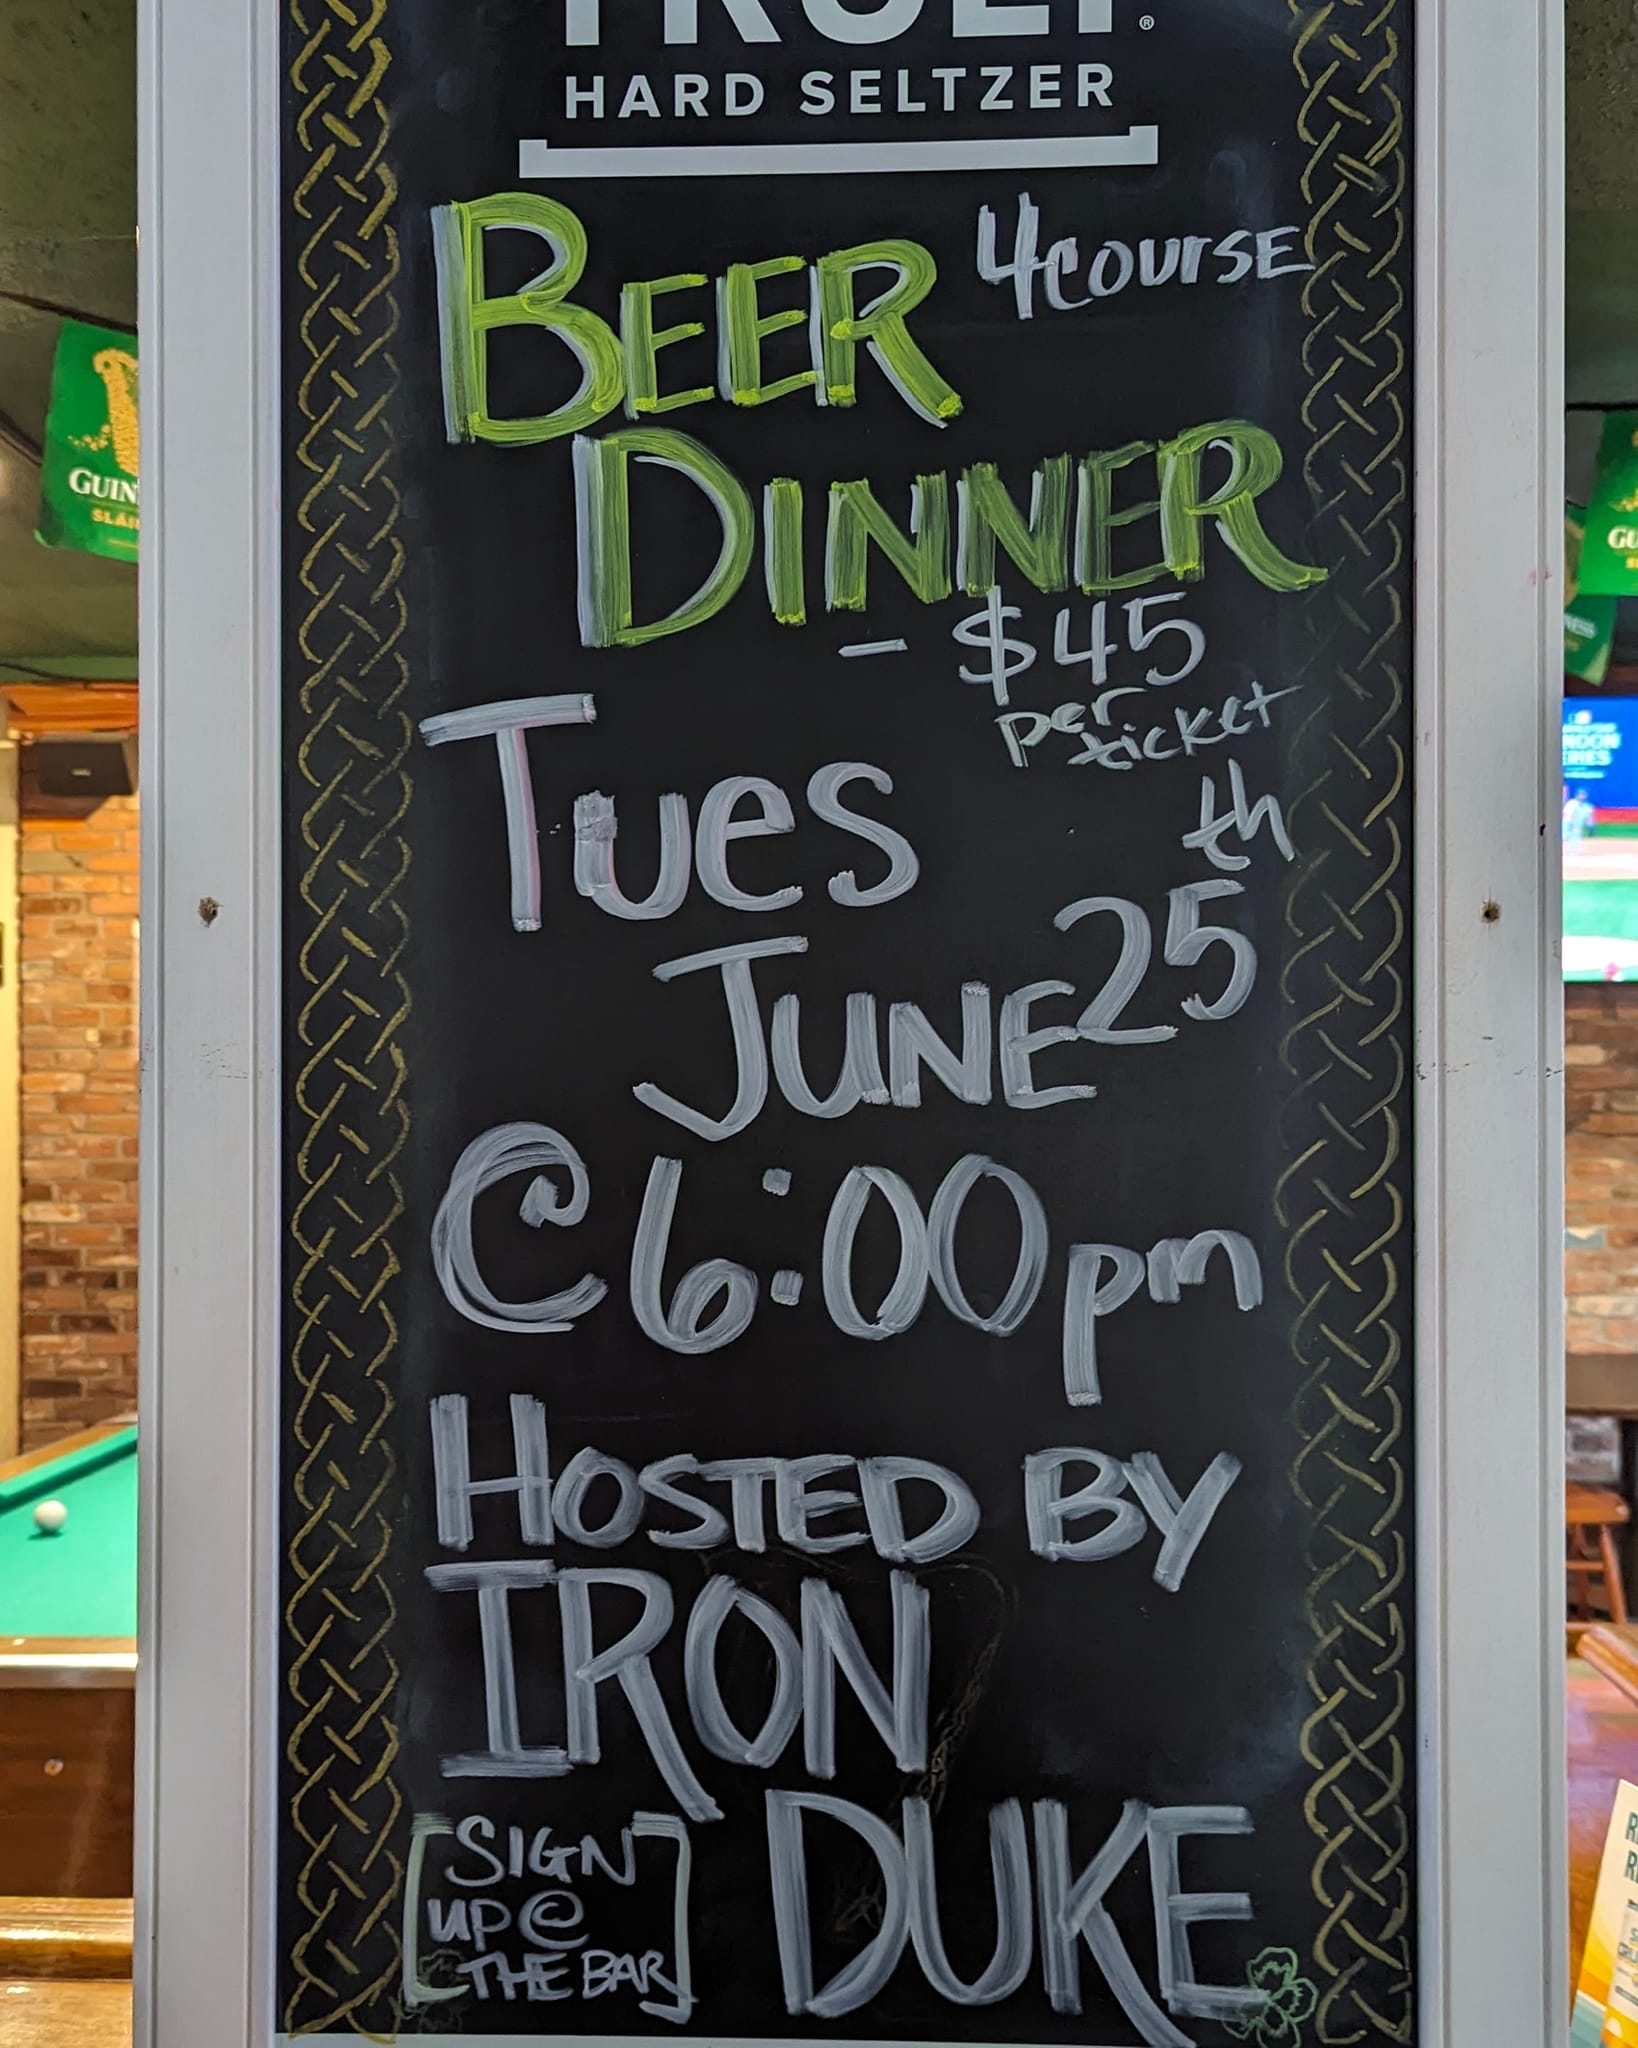 TRULY®
HARD SELTZER
BEER 4 COURSE
DINNER
- $45
per
ticket
Tues
JUNE 25th
@ 6:00pm
HOSTED BY
IRON
DUKE
[SIGN
UP @
THE BAR]
GUIN
SLÁI
GU
NESS
NDON
ERIES